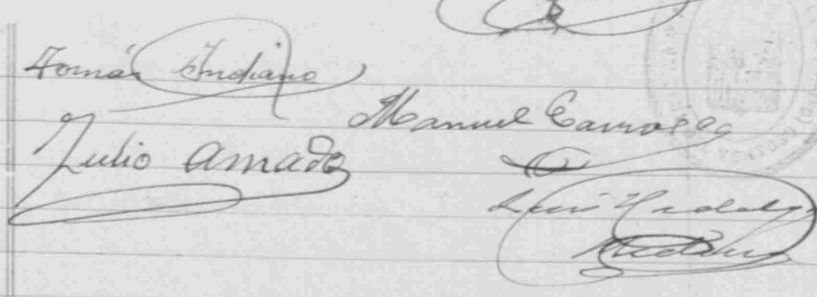 Tomás Indiano
Manuel Carrasco
Julio Amado
Luis Hidalgo